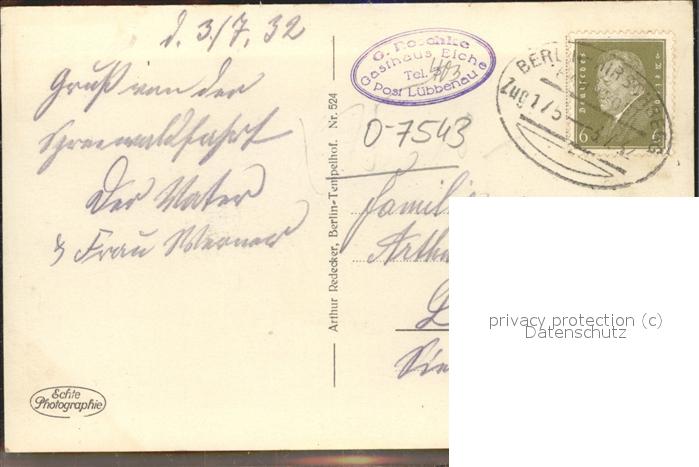 d. 3/7. 32
Gruß von der
Spreewaldfahrt
Der Vater
& Frau Werner
G. Poschke
Gasthaus Eiche
Tel. 403
Post Lübbenau
O-7543
BERL
Zug 175
Deutsches
6 6
Familie
Arthu
Arthur Redecker, Berlin-Tempelhof. Nr. 524
Echte
Photographie
privacy protection (c)
Datenschutz